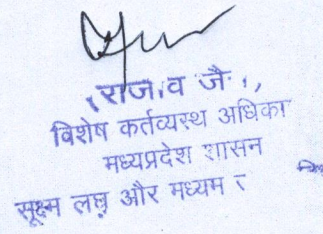 (राजीव जैन),
विशेष कर्तव्यस्थ अधिका
मध्यप्रदेश शासन
सूक्ष्म लघु और मध्यम